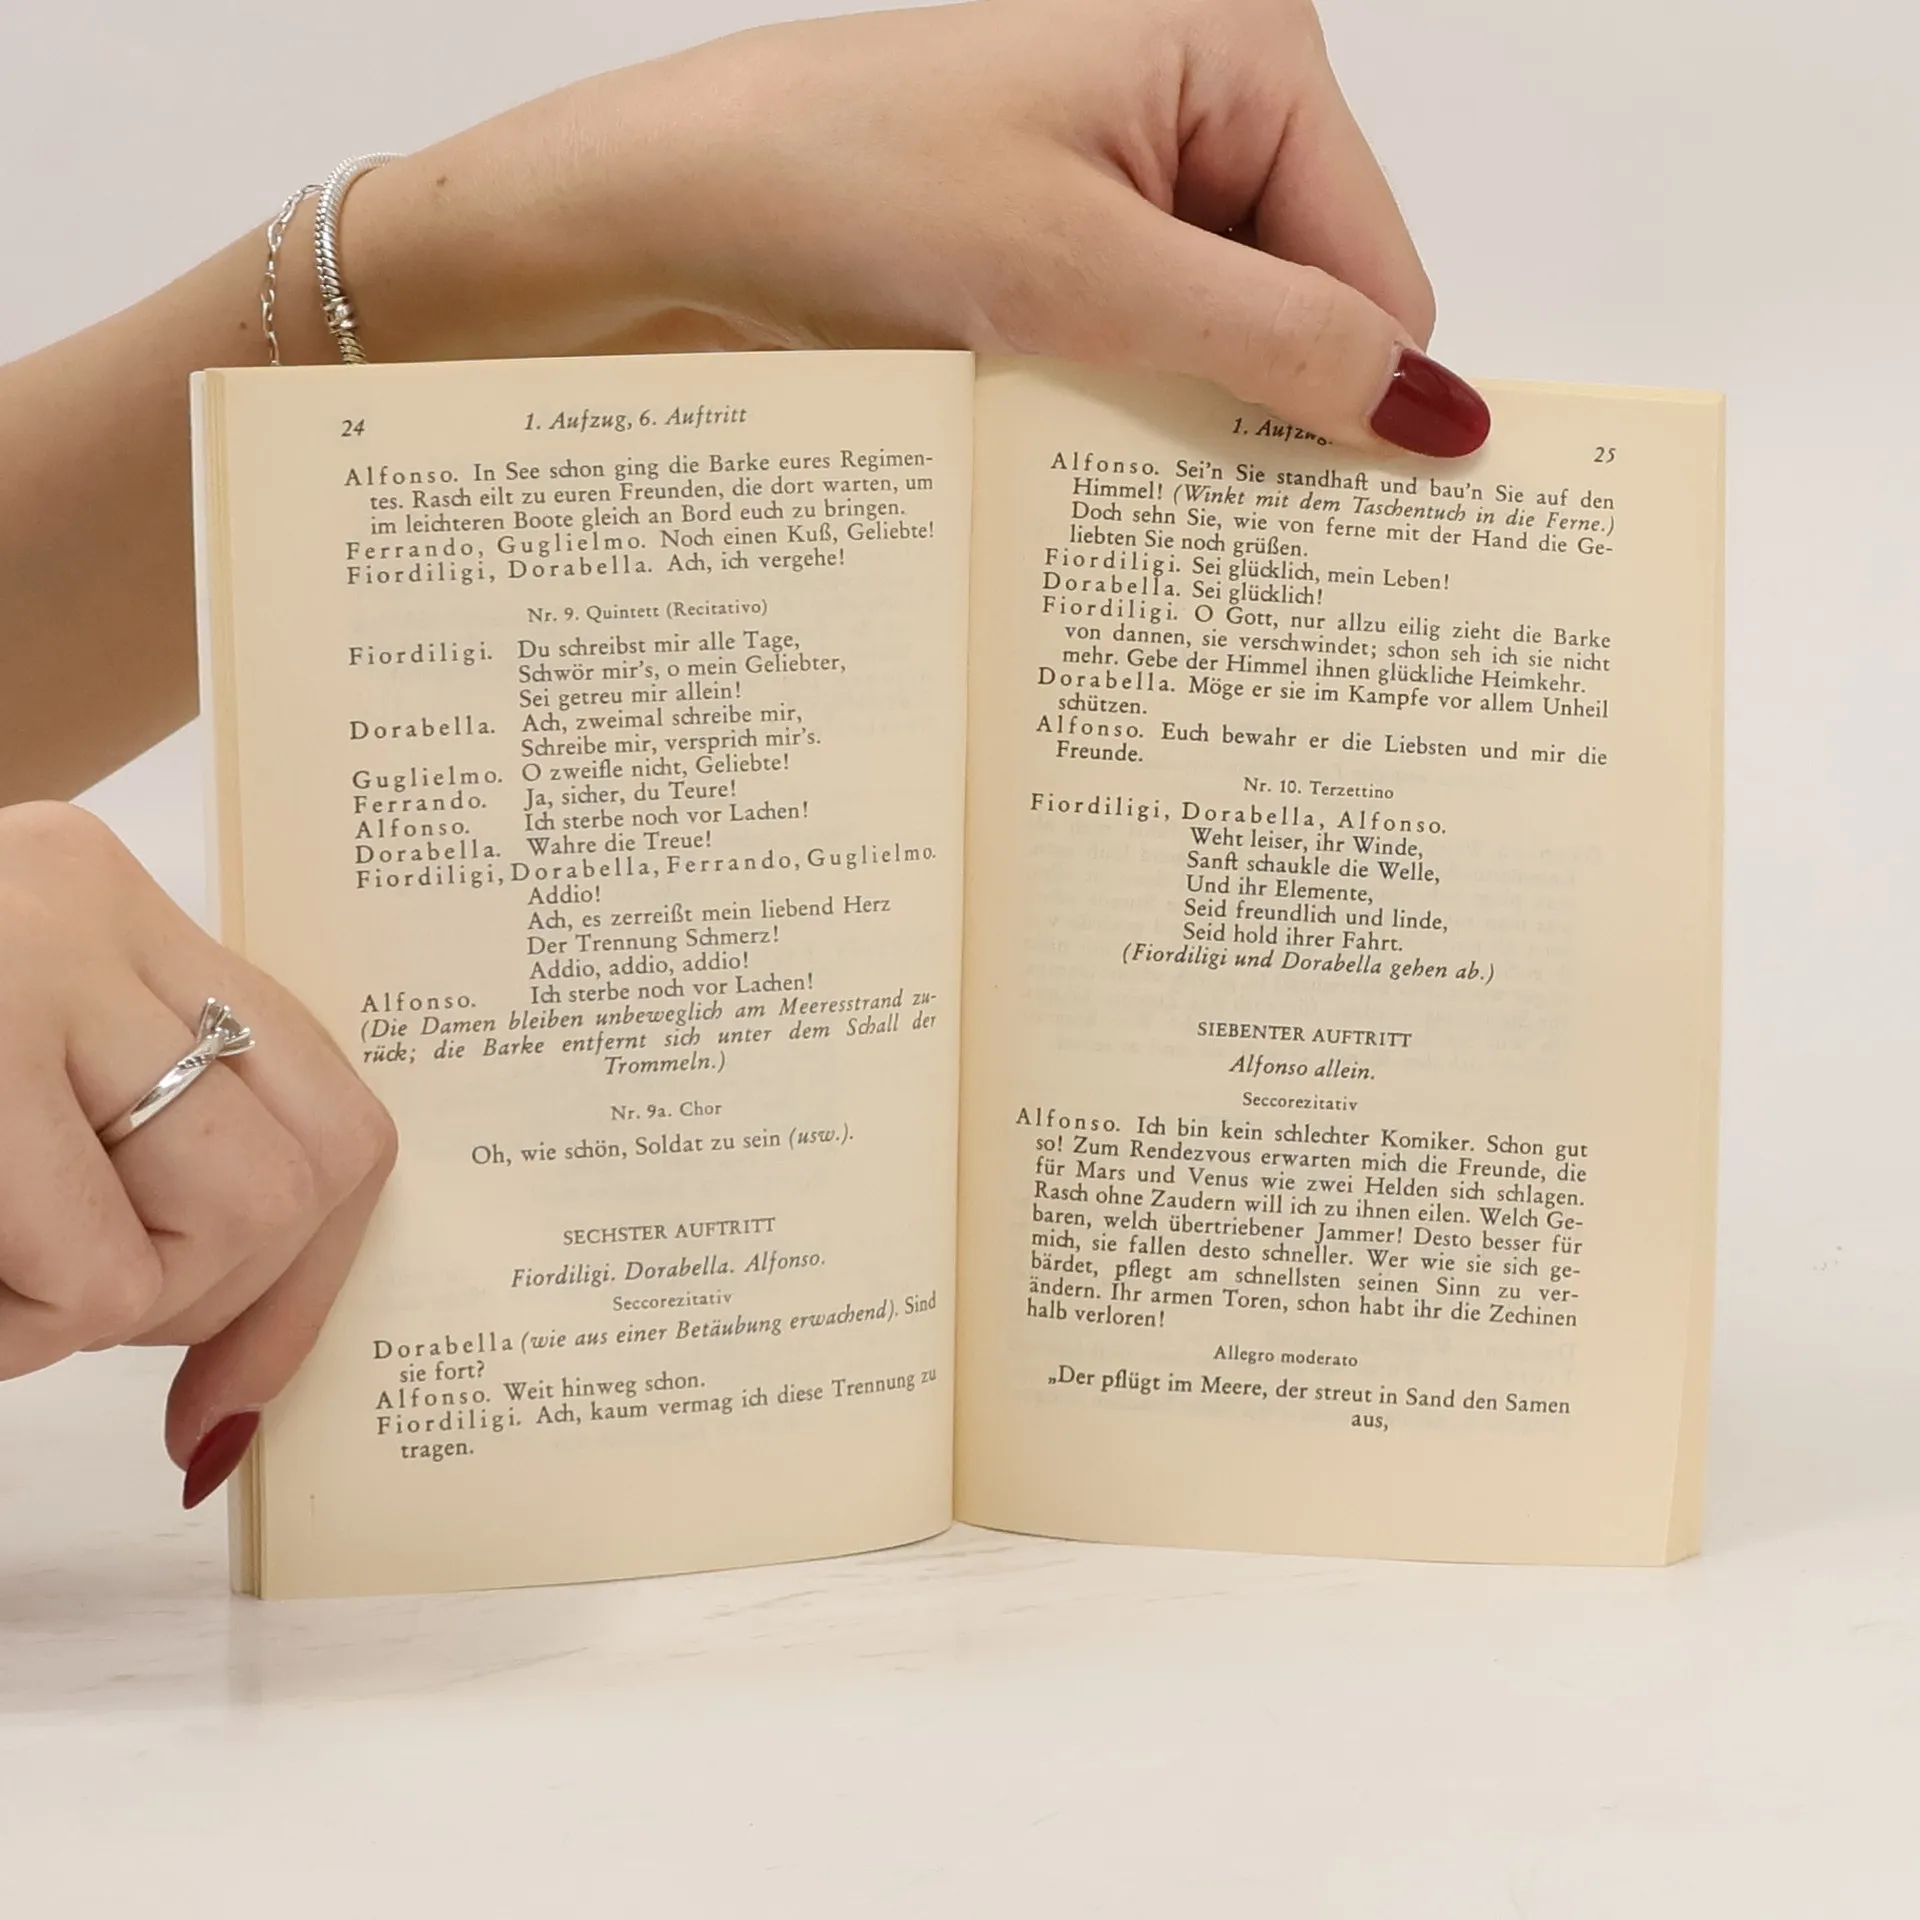 24
1. Aufzug, 6. Auftritt
Alfonso. In See schon ging die Barke eures Regimen-
tes. Rasch eilt zu euren Freunden, die dort warten, um
im leichteren Boote gleich an Bord euch zu bringen.
Ferrando, Guglielmo. Noch einen Kuß, Geliebte!
Fiordiligi, Dorabella. Ach, ich vergehe!
Nr. 9. Quintett (Recitativo)
Fiordiligi. Du schreibst mir alle Tage,
Schwör mir's, o mein Geliebter,
Sei getreu mir allein!
Dorabella. Ach, zweimal schreibe mir,
Schreibe mir, versprich mir's.
Guglielmo. O zweifle nicht, Geliebte!
Ferrando. Ja, sicher, du Teure!
Alfonso. Ich sterbe noch vor Lachen!
Dorabella. Wahre die Treue!
Fiordiligi, Dorabella, Ferrando, Guglielmo.
Addio!
Ach, es zerreißt mein liebend Herz
Der Trennung Schmerz!
Addio, addio, addio!
Alfonso. Ich sterbe noch vor Lachen!
(Die Damen bleiben unbeweglich am Meeresstrand zu-
rück; die Barke entfernt sich unter dem Schall der
Trommeln.)
Nr. 9a. Chor
Oh, wie schön, Soldat zu sein (usw.).
SECHSTER AUFTRITT
Fiordiligi. Dorabella. Alfonso.
Seccorezitativ
Dorabella (wie aus einer Betäubung erwachend). Sind
sie fort?
Alfonso. Weit hinweg schon.
Fiordiligi. Ach, kaum vermag ich diese Trennung zu
tragen.
1. Aufzug,
25
Alfonso. Sei'n Sie standhaft und bau'n Sie auf den
Himmel! (Winkt mit dem Taschentuch in die Ferne.)
Doch sehn Sie, wie von ferne mit der Hand die Ge-
liebten Sie noch grüßen.
Fiordiligi. Sei glücklich, mein Leben!
Dorabella. Sei glücklich!
Fiordiligi. O Gott, nur allzu eilig zieht die Barke
von dannen, sie verschwindet; schon seh ich sie nicht
mehr. Gebe der Himmel ihnen glückliche Heimkehr.
Dorabella. Möge er sie im Kampfe vor allem Unheil
schützen.
Alfonso. Euch bewahr er die Liebsten und mir die
Freunde.
Nr. 10. Terzettino
Fiordiligi, Dorabella, Alfonso.
Weht leiser, ihr Winde,
Sanft schaukle die Welle,
Und ihr Elemente,
Seid freundlich und linde,
Seid hold ihrer Fahrt.
(Fiordiligi und Dorabella gehen ab.)
SIEBENTER AUFTRITT
Alfonso allein.
Seccorezitativ
Alfonso. Ich bin kein schlechter Komiker. Schon gut
so! Zum Rendezvous erwarten mich die Freunde, die
für Mars und Venus wie zwei Helden sich schlagen.
Rasch ohne Zaudern will ich zu ihnen eilen. Welch Ge-
baren, welch übertriebener Jammer! Desto besser für
mich, sie fallen desto schneller. Wer wie sie sich ge-
bärdet, pflegt am schnellsten seinen Sinn zu ver-
ändern. Ihr armen Toren, schon habt ihr die Zechinen
halb verloren!
Allegro moderato
„Der pflügt im Meere, der streut in Sand den Samen
aus,